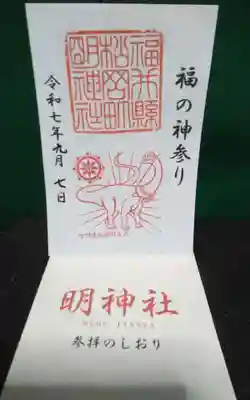 福の神参り
福井縣
松岡町
明神社
令和七年九月 七日
明神社
参拝のしおり